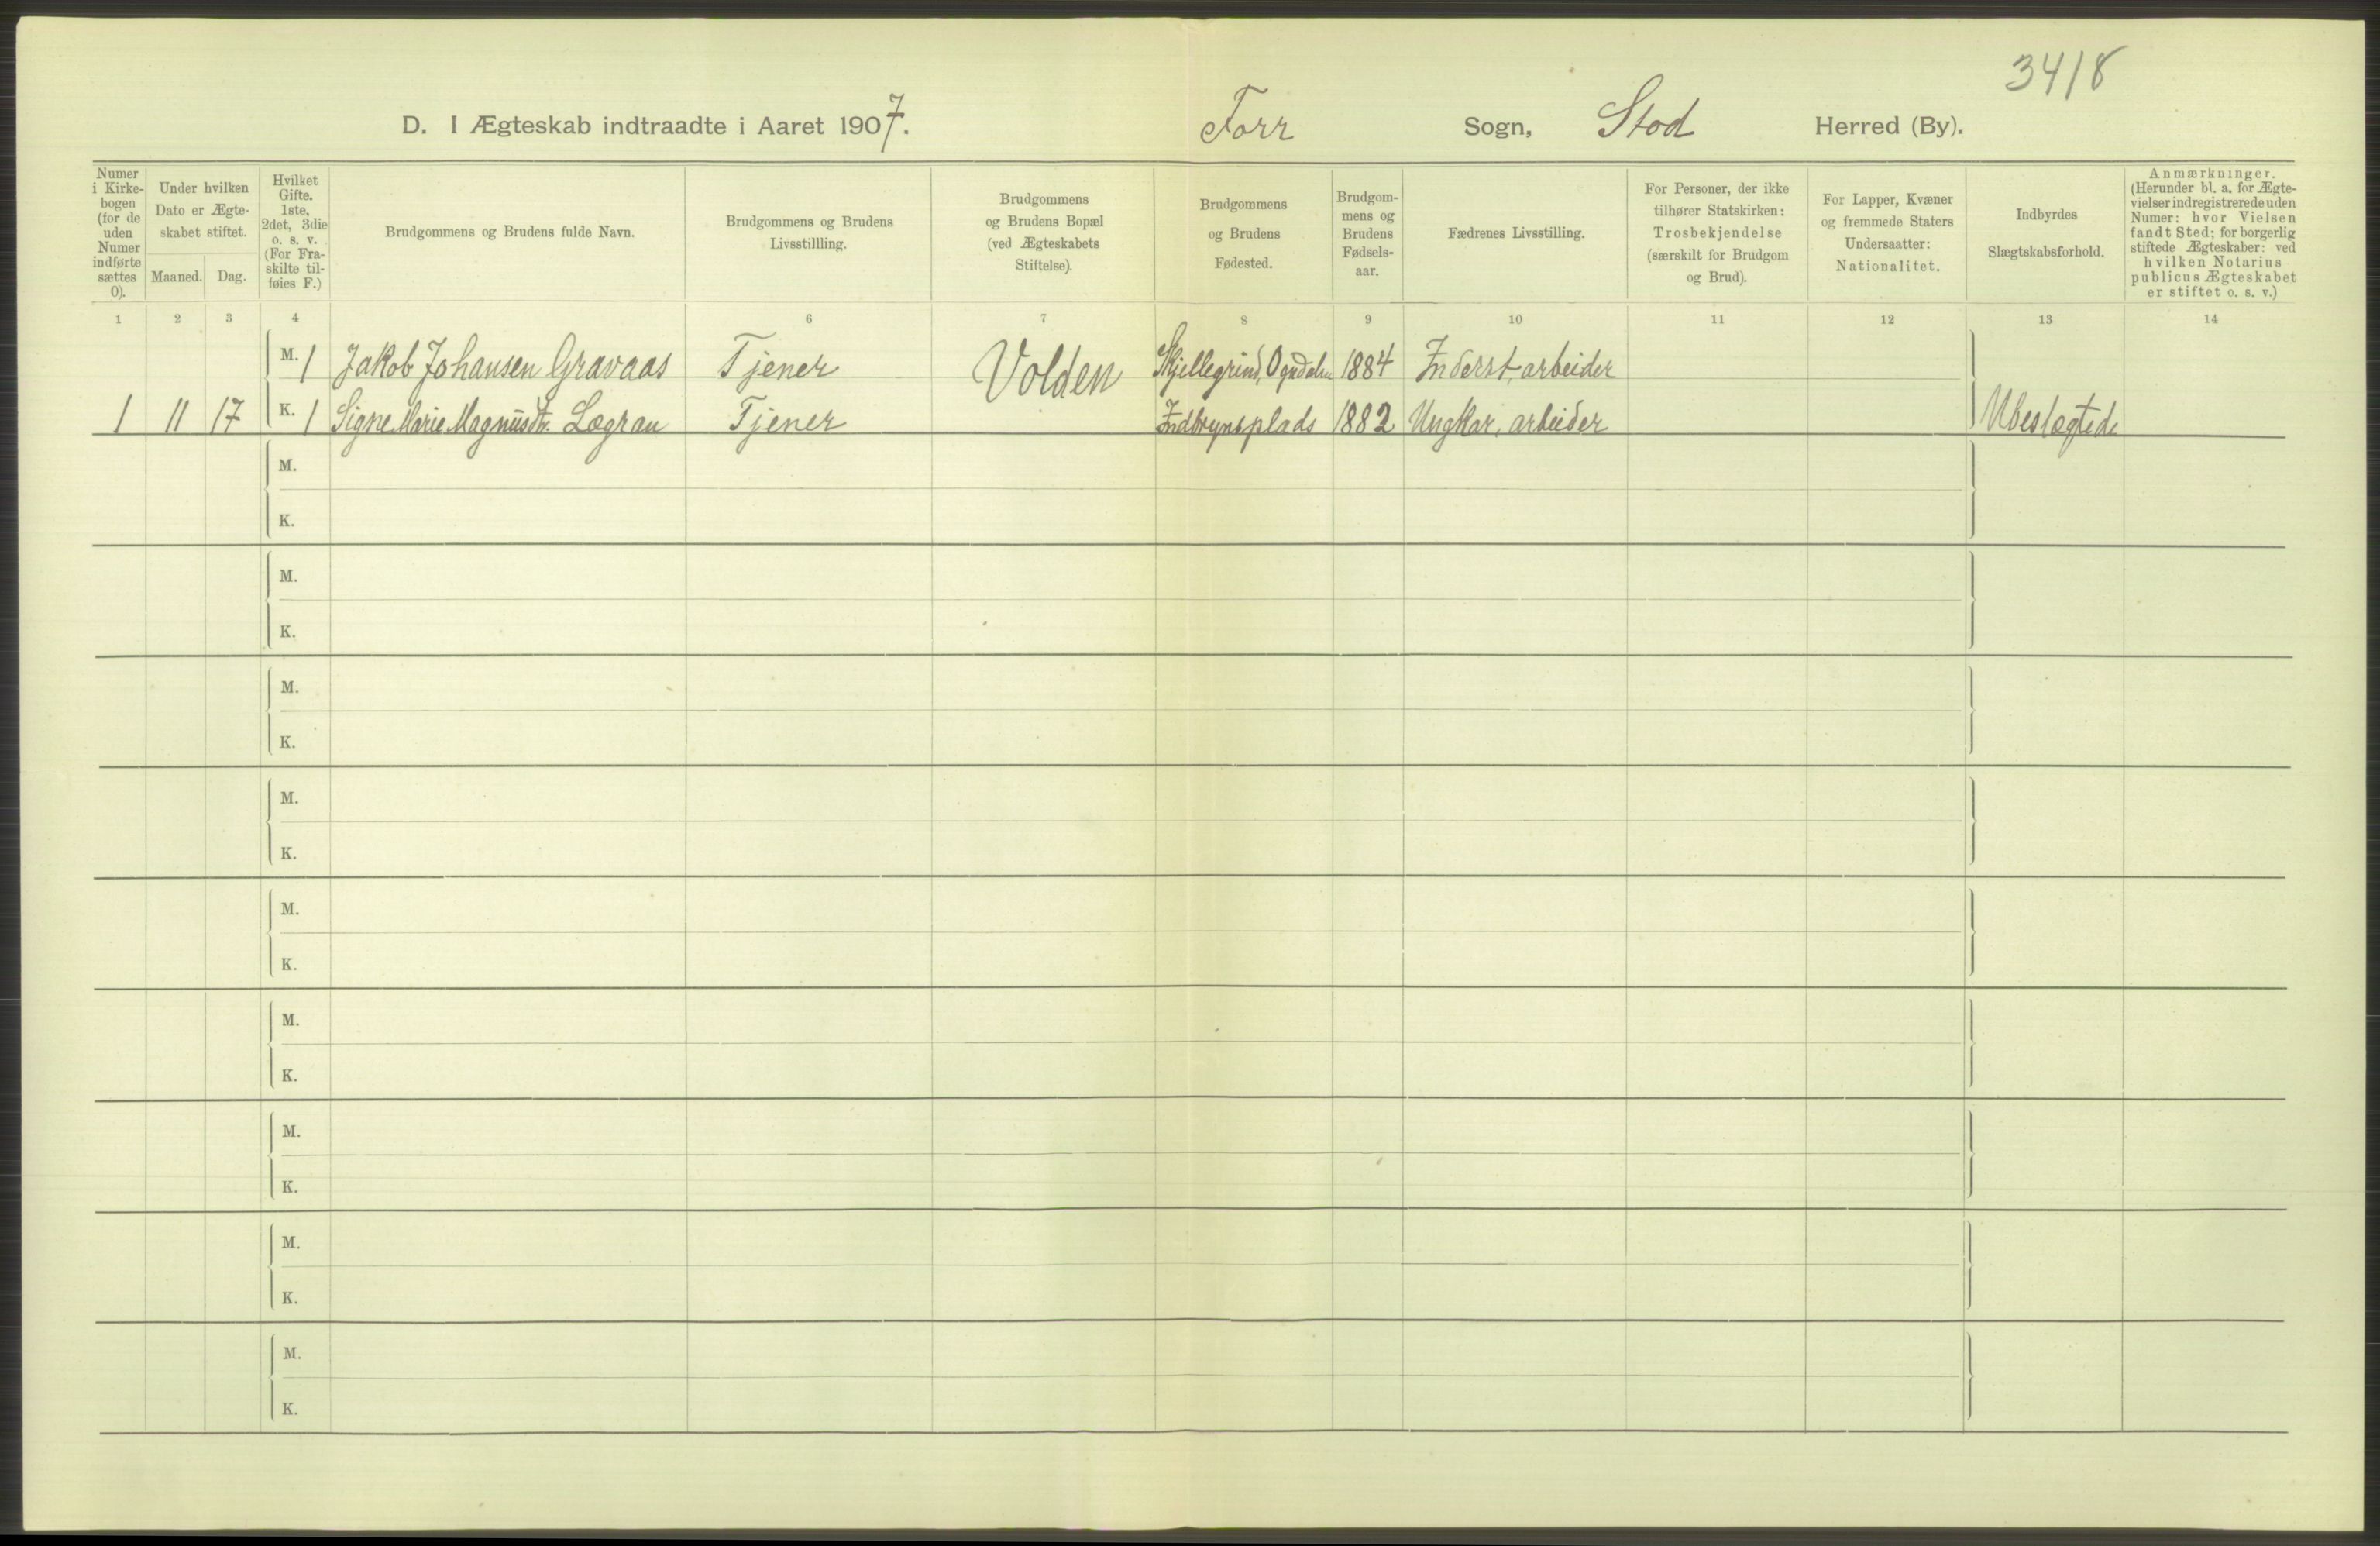 3418
D. I Ægteskab indtraadte i Aaret 1907. Forr Sogn, Stod Herred (By).
Numer i Kirkebogen (for de uden Numer indførte sættes 0).
Under hvilken Dato er Ægteskabet stiftet.
Maaned. Dag.
Hvilket Gifte. 1ste, 2det, 3die o. s. v. (For Fraskilte tilføies F.)
Brudgommens og Brudens fulde Navn.
Brudgommens og Brudens Livsstillling.
Brudgommens og Brudens Bopæl (ved Ægteskabets Stiftelse).
Brudgommens og Brudens Fødested.
Brudgommens og Brudens Fødselsaar.
Fædrenes Livsstilling.
For Personer, der ikke tilhører Statskirken: Trosbekjendelse (særskilt for Brudgom og Brud).
For Lapper, Kvæner og fremmede Staters Undersaatter: Nationalitet.
Indbyrdes Slægtskabsforhold.
Anmærkninger. (Herunder bl. a. for Ægtevielser indregistrerede uden Numer: hvor Vielsen fandt Sted; for borgerlig stiftede Ægteskaber: ved hvilken Notarius publicus Ægteskabet er stiftet o. s. v.)
1 2 3 4 6 7 8 9 10 11 12 13 14
M. 1 Jakob Johansen Gravaas Tjener Volden Skjellegrind, Ogndalen 1884 Inderst, arbeider
1 11 17 K. 1 Signe Marie Magnusdtr. Lægran Tjener Indbrynsplads 1882 Ungkar, arbeider Ubeslægtede
M.
K.
M.
K.
M.
K.
M.
K.
M.
K.
M.
K.
M.
K.
M.
K.
M.
K.